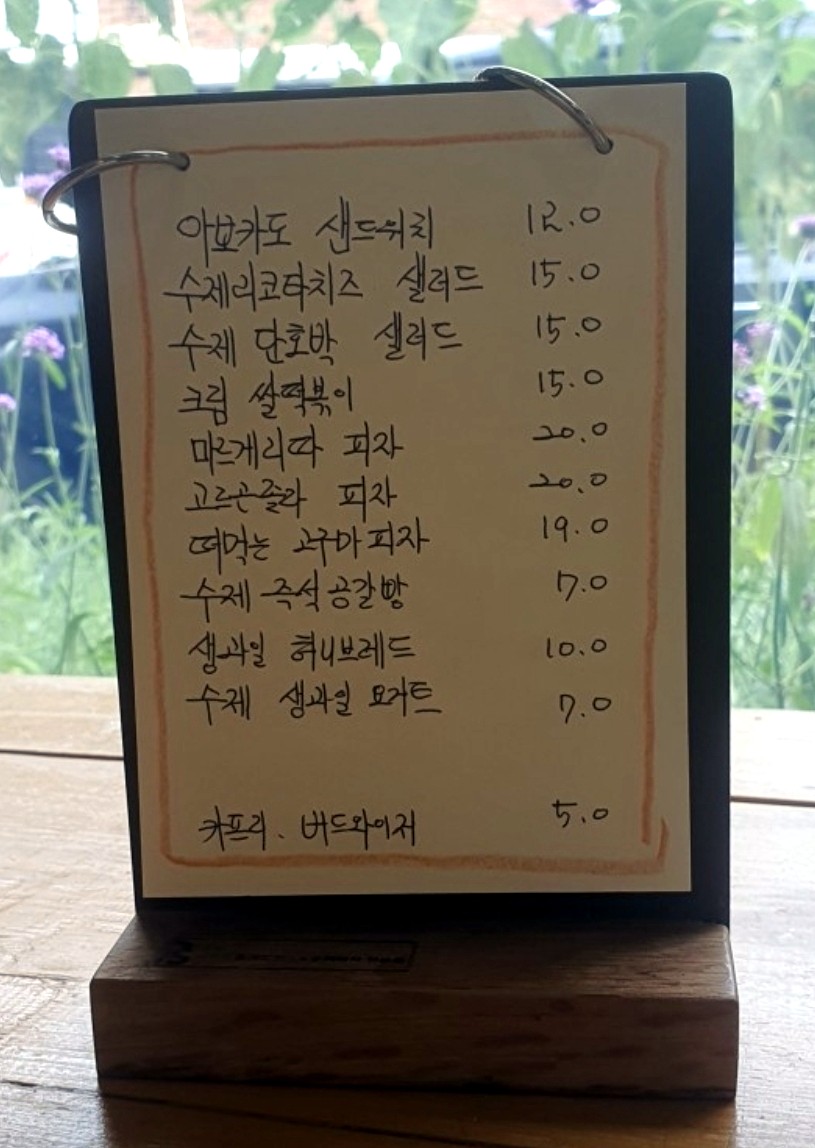 아보카도 샌드위치 12.0
수제리코타치즈 샐러드 15.0
수제 단호박 샐러드 15.0
크림 쌀떡볶이 15.0
마르게리따 피자 20.0
고르곤졸라 피자 20.0
떠먹는 고구마피자 19.0
수제 즉석 공갈빵 7.0
생과일 허니브레드 10.0
수제 생과일 요거트 7.0
카프리. 버드와이저 5.0